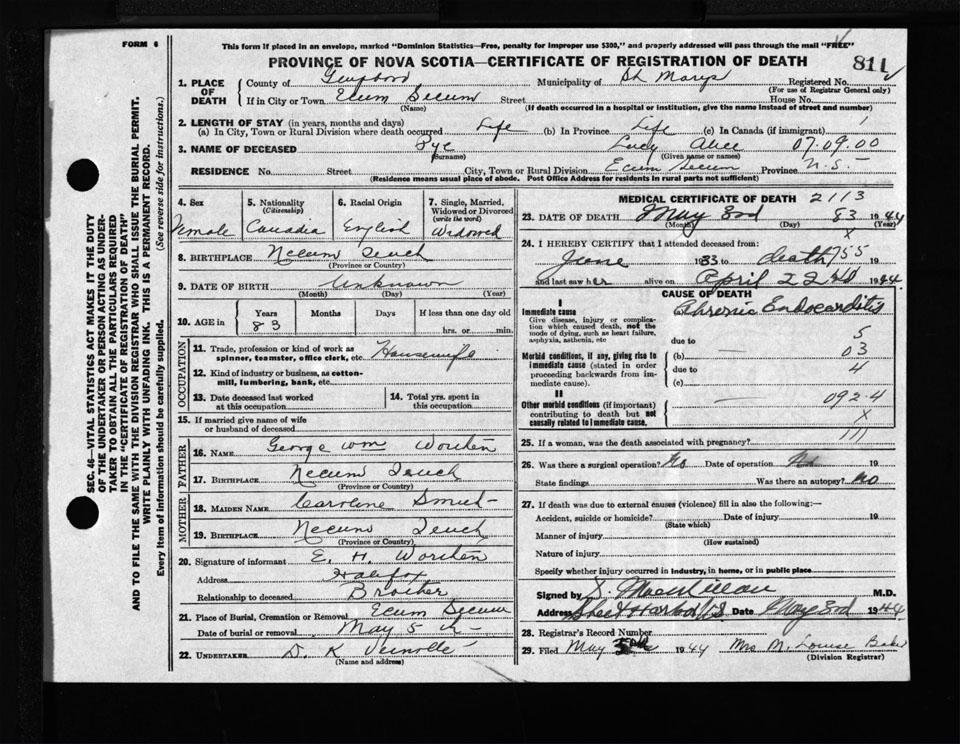 FORM 6
This form if placed in an envelope, marked "Dominion Statistics—Free, penalty for improper use $300," and properly addressed will pass through the mail "FREE"
PROVINCE OF NOVA SCOTIA—CERTIFICATE OF REGISTRATION OF DEATH
811
1. PLACE OF DEATH
County of Municipality of St Marys Registered No.
(For use of Registrar General only)
If in City or Town Ecum Secum Street House No.
(Name) (If death occurred in a hospital or institution, give the name instead of street and number)
2. LENGTH OF STAY (in years, months and days)
(a) In City, Town or Rural Division where death occurred Life (b) In Province Life (c) In Canada (if immigrant)
3. NAME OF DECEASED Pye Lucy Alice 07.09.00
(Surname) (Given name or names)
RESIDENCE No. Street City, Town or Rural Division Ecum Secum Province N.S.
(Residence means usual place of abode. Post Office Address for residents in rural parts not sufficient)
4. Sex Female
5. Nationality (Citizenship) Canadia
6. Racial Origin English
7. Single, Married, Widowed or Divorced (write the word) Widowed
8. BIRTHPLACE Necum Teuch
(Province or Country)
9. DATE OF BIRTH Unknown
(Month) (Day) (Year)
10. AGE in
Years Months Days If less than one day old
83 hrs. or min.
OCCUPATION
11. Trade, profession or kind of work as spinner, teamster, office clerk, etc. Housewife
12. Kind of industry or business, as cotton-mill, lumbering, bank, etc.
13. Date deceased last worked at this occupation
14. Total yrs. spent in this occupation
15. If married give name of wife or husband of deceased
FATHER
16. NAME George Wm
17. BIRTHPLACE Necum Teuch
(Province or Country)
MOTHER
18. MAIDEN NAME Caroline
19. BIRTHPLACE Necum Teuch
(Province or Country)
20. Signature of informant E. H.
Address Halifax
Relationship to deceased Brother
21. Place of Burial, Cremation or Removal Ecum Secum
Date of burial or removal May 5th
22. UNDERTAKER D. K
(Name and address)
MEDICAL CERTIFICATE OF DEATH 2113
23. DATE OF DEATH May 3rd 83 1944
(Month) (Day) (Year)
X
24. I HEREBY CERTIFY that I attended deceased from:
June 1933 to death 755 19
and last saw her alive on April 22nd 1944
CAUSE OF DEATH
I
Immediate cause
Give disease, injury or complication which caused death, not the mode of dying, such as heart failure, asphyxia, asthenia, etc
Chronic Endocarditis
due to 5
Morbid conditions, if any, giving rise to immediate cause (stated in order proceeding backwards from immediate cause).
(b) 03
due to 4
(c)
II
Other morbid conditions (if important) contributing to death but not causally related to immediate cause.
092.4
X
25. If a woman, was the death associated with pregnancy? 111
26. Was there a surgical operation? No Date of operation 19
State findings Was there an autopsy? no
27. If death was due to external causes (violence) fill in also the following:—
Accident, suicide or homicide? Date of injury 19
(State which)
Manner of injury
(How sustained)
Nature of injury
Specify whether injury occurred in industry, in home, or in public place
Signed by M.D.
Address Sheet Harbor NS Date May 3rd 1944
28. Registrar's Record Number
29. Filed May 1944 Mrs M. Louise
(Division Registrar)
SEC. 46—VITAL STATISTICS ACT MAKES IT THE DUTY
OF THE UNDERTAKER OR PERSON ACTING AS UNDER-
TAKER TO OBTAIN ALL THE PARTICULARS REQUIRED
IN THE "CERTIFICATE OF REGISTRATION OF DEATH"
AND TO FILE THE SAME WITH THE DIVISION REGISTRAR WHO SHALL ISSUE THE BURIAL PERMIT.
WRITE PLAINLY WITH UNFADING INK. THIS IS A PERMANENT RECORD.
Every item of Information should be carefully supplied. (See reverse side for instructions.)